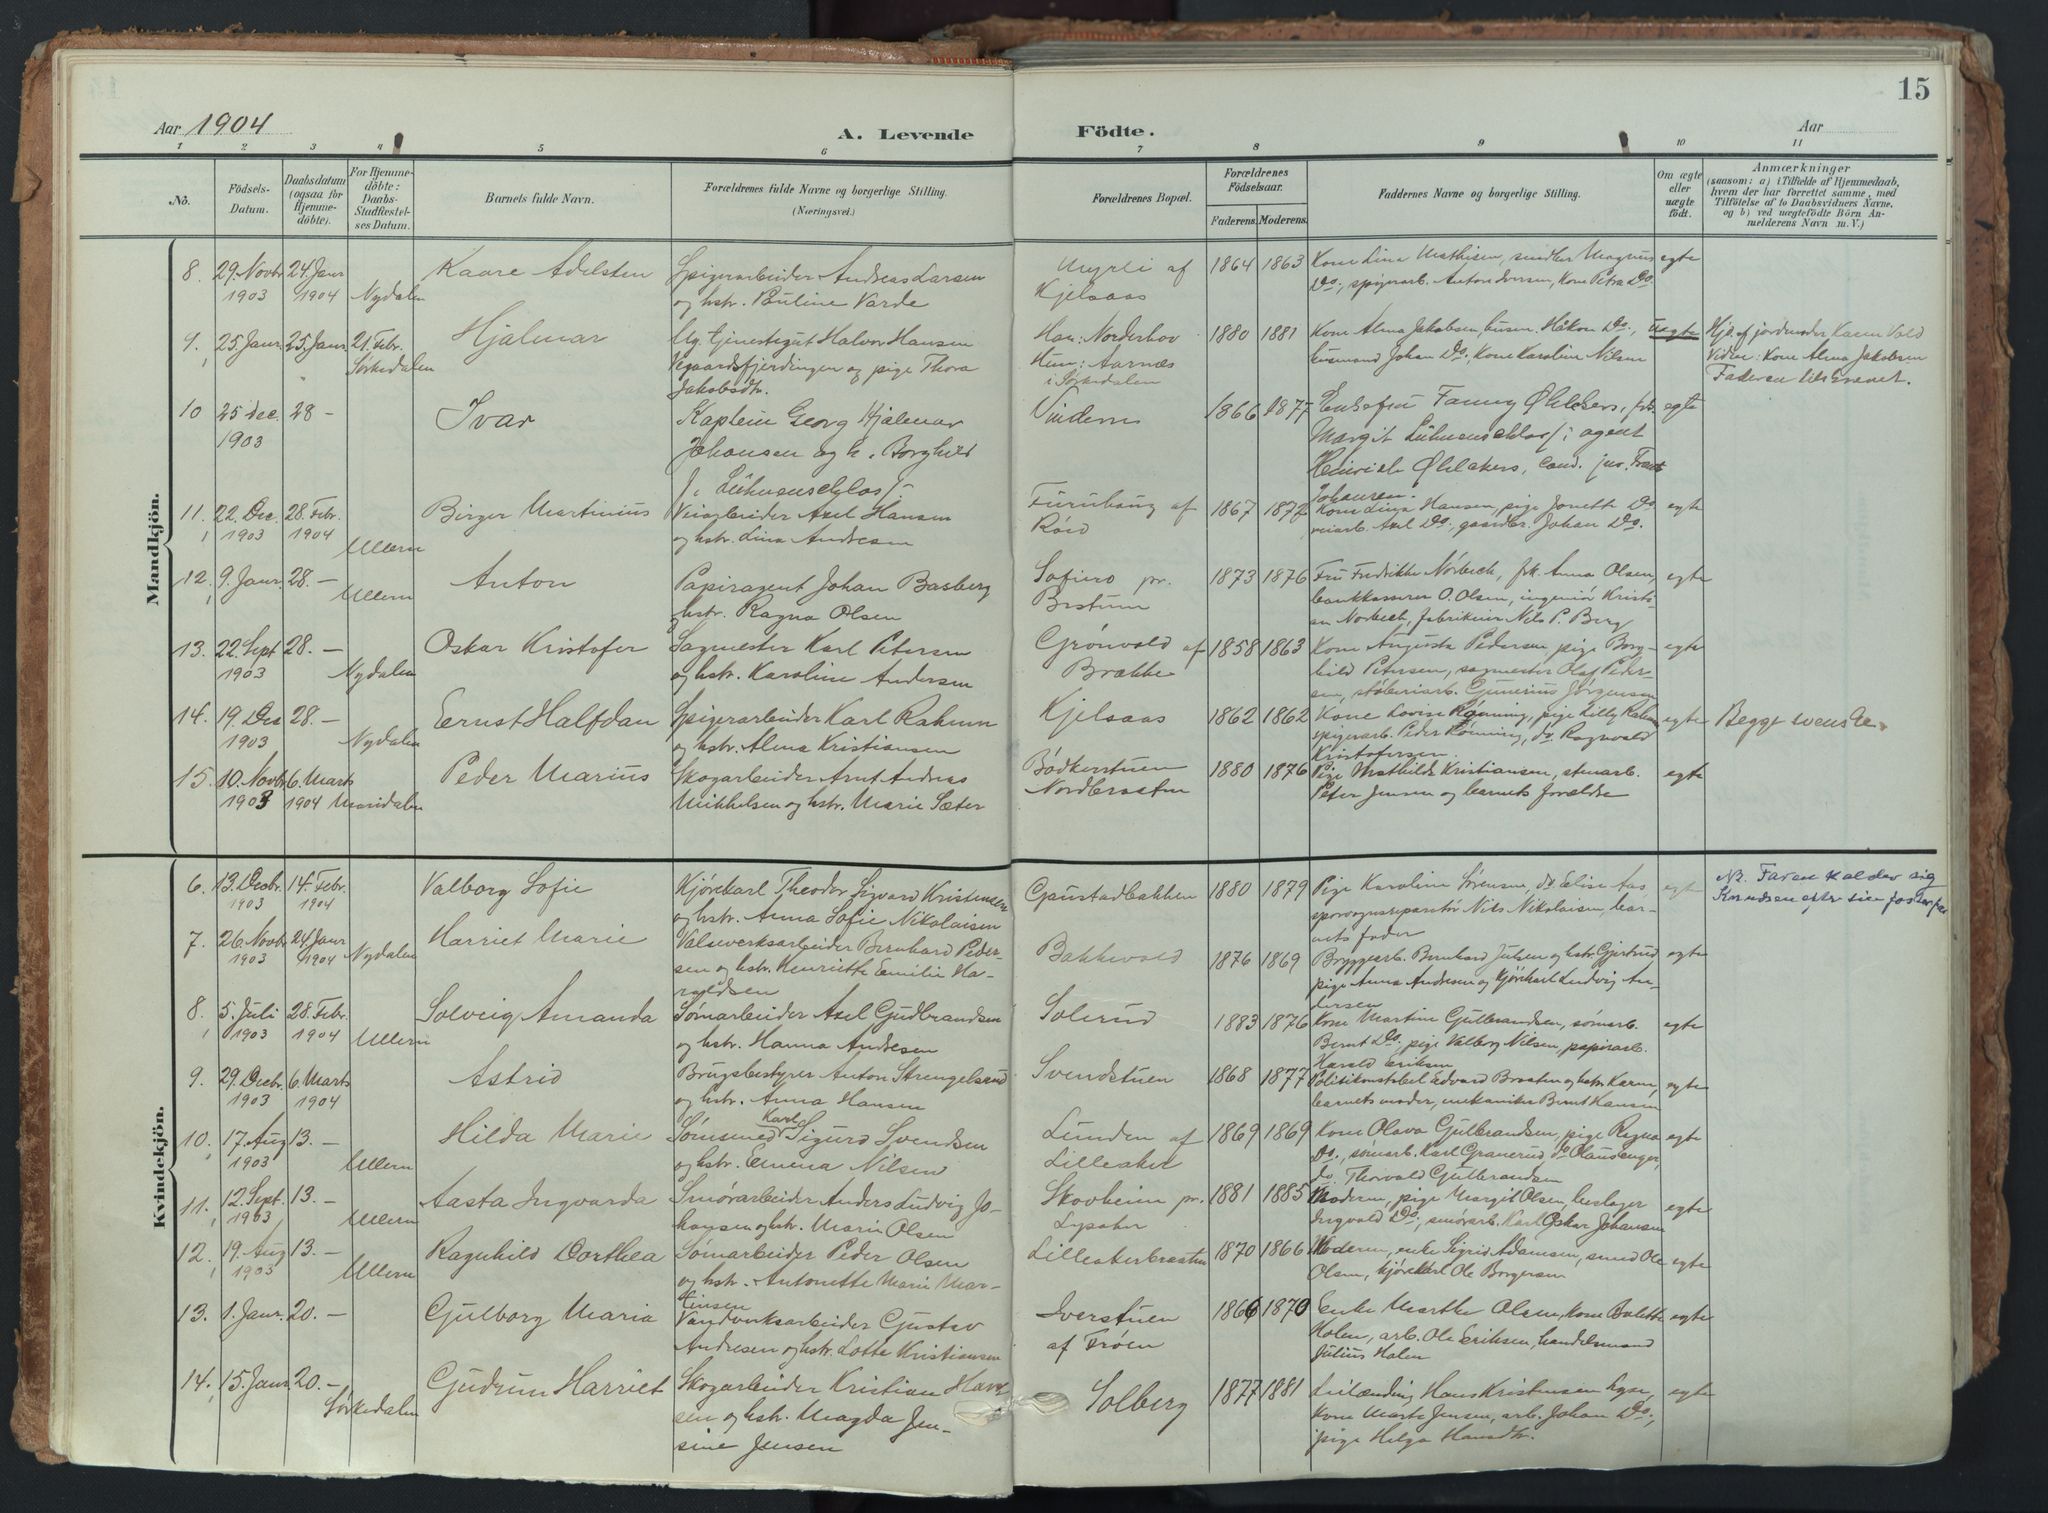 15
Aar 1904
A. Levende Födte.
Aar
1 2 3 4 5 6 7 8 9 10 11
No.
Födsels-Datum.
Daabsdatum (ogsaa for Hjemme-döbte).
For Hjemme-döbte: Daabs-Stadfæstel-ses Datum.
Barnets fulde Navn.
Forældrenes fulde Navne og borgerlige Stilling. (Næringsvei.)
Forældrenes Bopæl.
Forældrenes Födselsaar.
Faderens. Moderens.
Faddernes Navne og borgerlige Stilling.
Om ægte eller uægte födt.
Anmærkninger
(saasom: a) i Tilfælde af Hjemmedaab, hvem der har forrettet samme, med Tilföielse af to Daabsvidners Navne, og b) ved uægtefödte Börn An-melderens Navn m. V.)
Mandkjön.
8. 29. Novbr 1903 24. Janr 1904 Nydalen
Kaare Adelsten
Spigerarbeider Andreas Larsen
og hstr. Pauline Varde
Myrli af
Kjelsaas
1864 1863
Kone Lina Mathisen, smedler Magnus
Do., spigerarb. Anton Iversen, Kone Petra Do.
egte
9. 25. Janr. 25. Janr. 21. Febr. Sørkedalen
Hjalmar
Ug. tjenestegut Halvor Hansen
Vegaardsfjerdingen og pige Thora
Jakobsdtr.
Han: Norderhov
Hun: Aarnæs
i Sørkedalen
1880 1881
Kone Alma Jakobsen, husm. Håkon Do.,
husmand Johan Do., Kone Karoline Nilsen
uegte
Hjd. af jordmoder Karen Vold
Vidner: Kone Alma Jakobsen
Faderen lits Granet.
10 25 dec. 1903 28 –
Ivar
Kaptein Georg Hjalmar
Johansen og h. Borghild
f. Lühnenschloss
Vindern
1866 1877
Enkefru Fanny Øhlckers, frk.
Margit Lühnenschloss, agent
Heinrich Øhlckers, cand. jur. Frantz
Johansen.
egte
11. 22. Dec. 1903 28. Febr. 1904 Ullern
Birger Martinius
Veiarbeider Axel Hansen
og hstr. Lina Andresen
Furubang af
Røid
1867 1872
Kone Lina Hansen, pige Jonette Do
veiarb. Axel Do., gaardbr. Johan Do.
egte
12. 9. Janr. 28. – Ullern
Anton
Papiragent Johan Basberg
hstr. Ragna Olsen
Sofiero pr.
Bestum
1873 1876
Fru Fredrikke Nørbech, frk. Anna Olsen,
bankkasserer O. Olsen, ingeniør Kristi-
an Nørbech, fabrikeier Nils P. Berg
egte
13. 22. Sept 1903 28. – Nydalen
Oskar Kristofer
Sagmester Karl Petersen
og hstr. Karoline Andersen
Grønvold af
Brække
1858 1863
Kone Augusta Pedersen, pige Borg-
hild Petersen, sagmester Olaf Peder-
sen, støberiarb. Gunerius Jørgensen
egte
14. 19. Des 1903 28. – Nydalen
Ernst Halfdan
Spigerarbeider Karl Rahmn
og hstr. Alma Kristiansen
Kjelsaas
1862 1862
Kone Lovise Rønning, pige Lilly Rahmn
spigerarb. Peder Rønning, do. Ragnvald
Kristofersen.
egte
Begge svenske.
15. 10. Novbr 1903 6. Marts 1904 Maridalen
Peder Marius
Skogarbeider Arnt Andreas
Mikkelsen og hstr. Marie Sæter
Bødkerstuen
Nordbraaten
1880 1876
Pige Mathilde Kristiansen, stenarb.
Peter Jensen og barnets forældre
egte
Kvindekjön.
6. 13. Desbr. 1903 14. Febr. 1904
Valborg Sofie
Kjørekarl Theodor Sigvard Kristensen
og hstr. Anna Sofie Nikolaisen
Gaustadbakken
1880 1879
Pige Karoline Sørensen, do. Elise Aas,
sporvognsreparatør Nils Nikolaisen, bar-
nets fader
egte
NB. Faren kalder sig
Knudsen efter sin fosterfar
7. 26. Novbr 1903 24. Janr 1904 Nydalen
Harriet Marie
Valseverksarbeider Bernhard Peder-
sen og hstr. Henriette Emilie Ha-
raldsen
Bakkevold
1876 1869
Bryggearb. Bernhard Julsen og hstr. Gjertrud
pige Anna Andresen og kjørekarl Ludvig An-
dersen
egte
8. 5. Juli 1903 28. Febr. 1904 Ullern
Solveig Amanda
Sømarbeider Axel Gudbrandsen
og hstr. Hanna Andresen
Solerud
1883 1876
Kone Martine Gulbrandsen, sømarb.
Bernt Do., pige Valborg Nilsen, papirarb.
Harald Eriksen
egte
9. 29. Desbr. 1903 6. Marts 1904
Astrid
Brugsbestyrer Anton Strengelsrud
og hstr. Anna Hansen
Svendstuen
1868 1877
Politikonstabel Edvard Braaten og hstr. Karen,
barnets moder, mekaniker Bernt Hansen
egte
10. 17. Aug 1903 13. – Ullern
Hilda Marie
Sømsmed Karl Sigurd Svendsen
og hstr. Emma Nilsen
Lunden af
Lilleaker
1869 1869
Kone Olava Gulbrandsen, pige Ragna
Do., sømarb. Karl Granerud, do Olaus Enger,
do. Thorvald Gulbrandsen
egte
11. 12. Sept. 1903 13. – Ullern
Aasta Ingvarda
Smørarbeider Anders Ludvig Jo-
hansen og hstr. Marie Olsen
Skovheim pr.
Lysaker
1881 1885
Moderen, pige Margit Olsen, beslager
Ingvald Do., smørarb. Karl Oskar Johansen
egte
12. 19. Aug 1903 13. – Ullern
Ragnhild Dorthea
Sømarbeider Peder Olsen
og hstr. Antonette Marie Mar-
tinsen
Lilleakerbraaten
1870 1866
Moderen, enke Sigrid Adamsen, smed Ole
Olsen, kjørekarl Ole Borgersen
egte
13. 1. Janr. 20. –
Gulborg Maria
Vandverksarbeider Gustav
Andresen og hstr. Lotte Kristiansen
Iverstuen
af Frøen
1866 1870
Enke Marthe Olsen, kone Bolette
Holen, arb. Ole Eriksen, handelsmand
Julius Holen
egte
14. 15. Janr 20. – Sørkedalen
Gudrun Harriet
Skogarbeider Kristian Han-
sen og hstr. Magda Jen-
sine Jensen
Solberg
1877 1881
Leilænding Hans Kristensen Lyse,
Kone Marte Jensen, arb. Johan Do.,
pige Helga Hansdtr.
egte